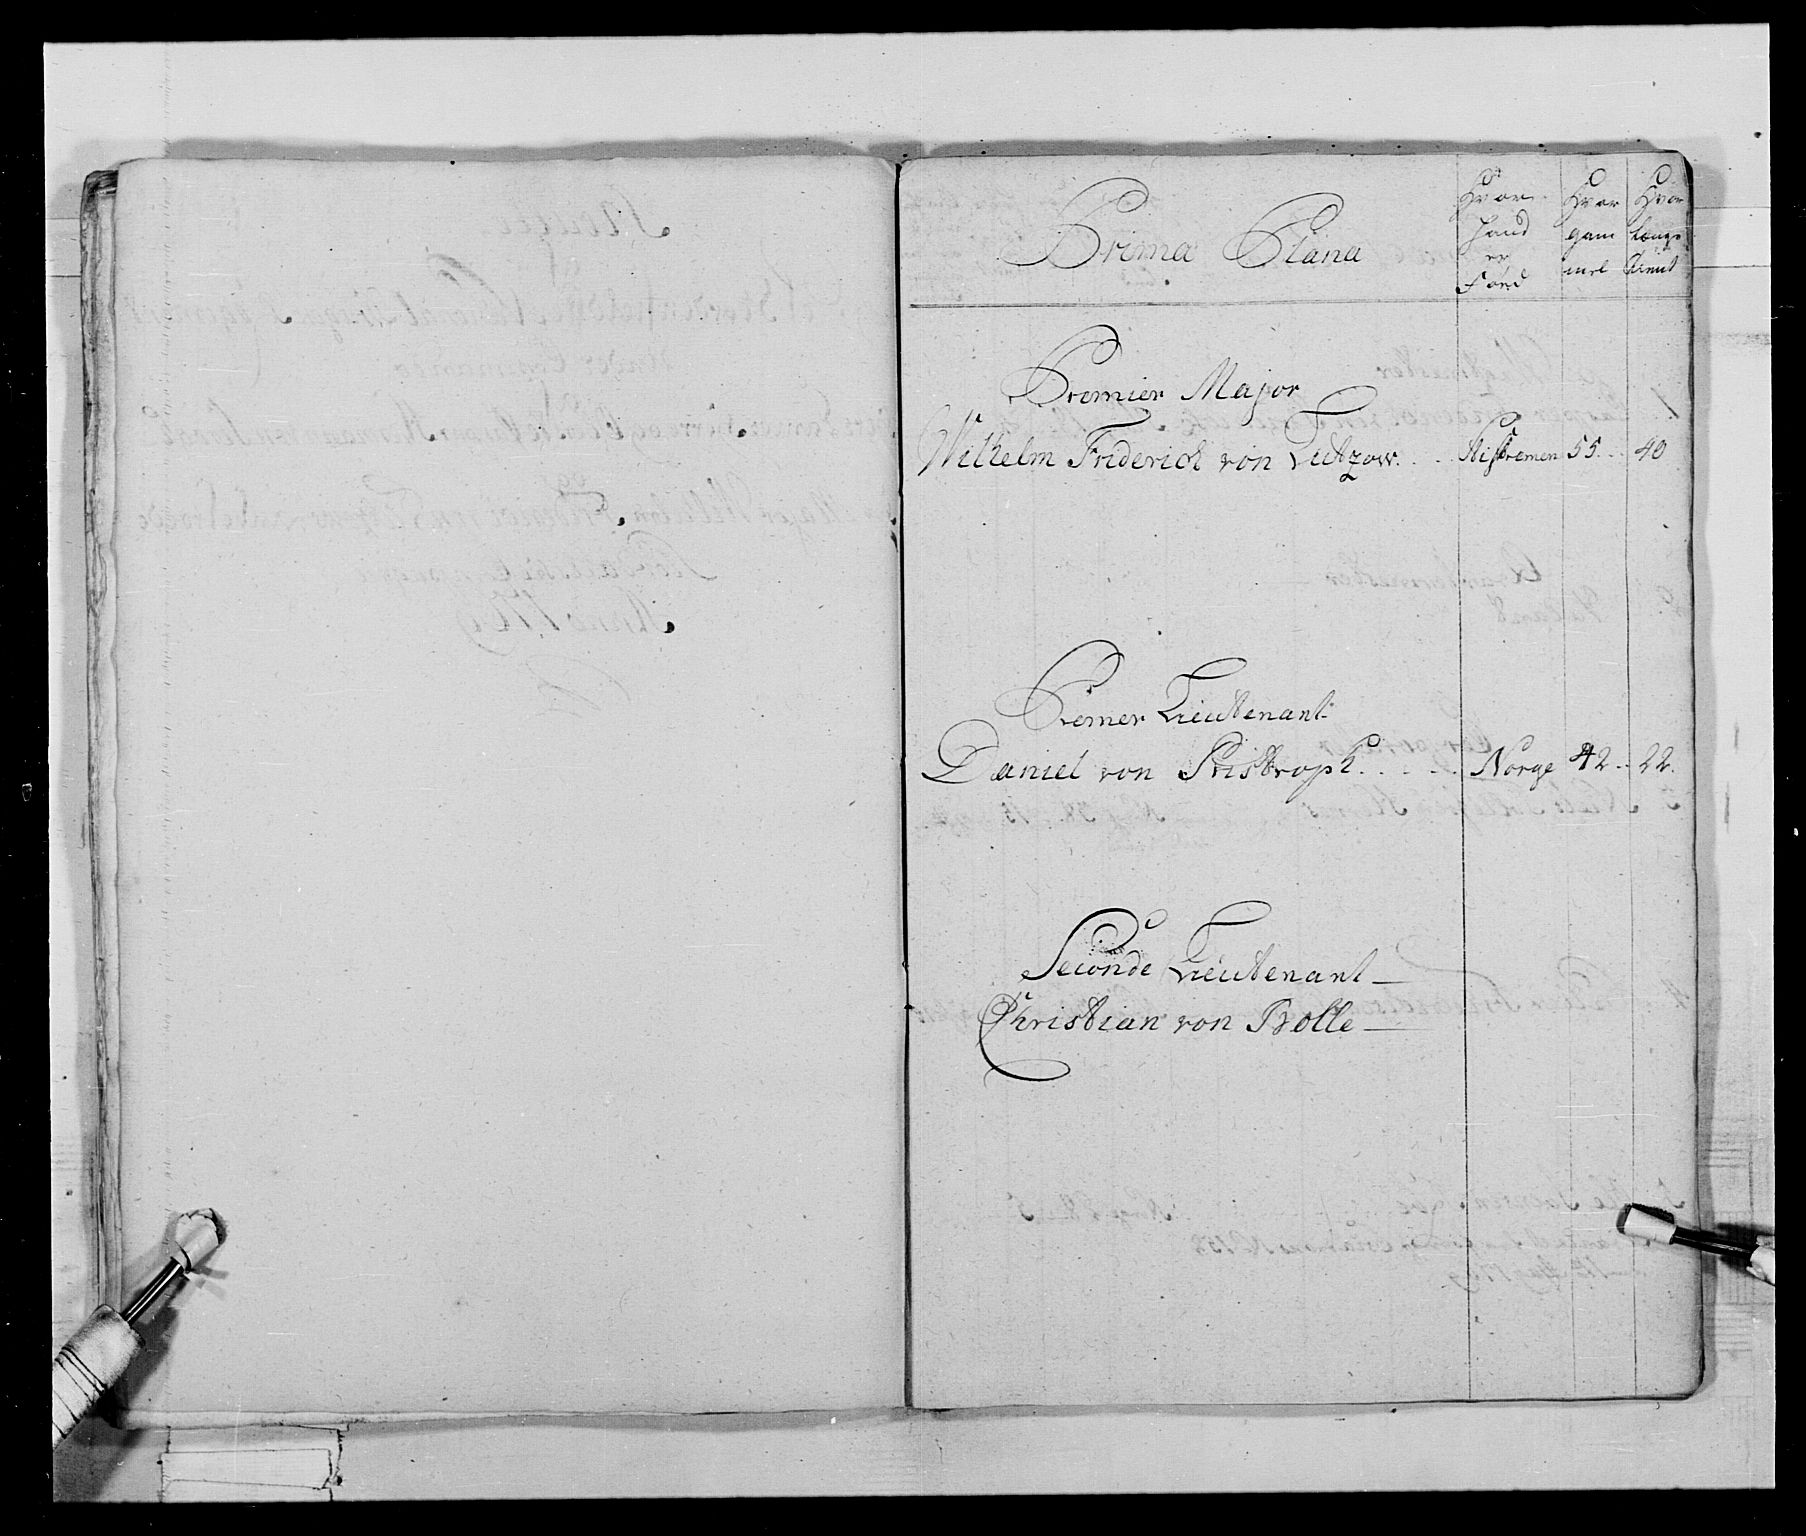 Prima Plana
Hvor
hand
er
Föed
Hvor
gam
mel
Hvor
længe
tient
Premier Major
Wilhelm Friderich von Lützow. . . 55. . . 40
Premier Lieutenant.
Daniel von Stistroph. . . . . Norge 42 . . 22.
Seconde Lieutenant
Christian von Bolle